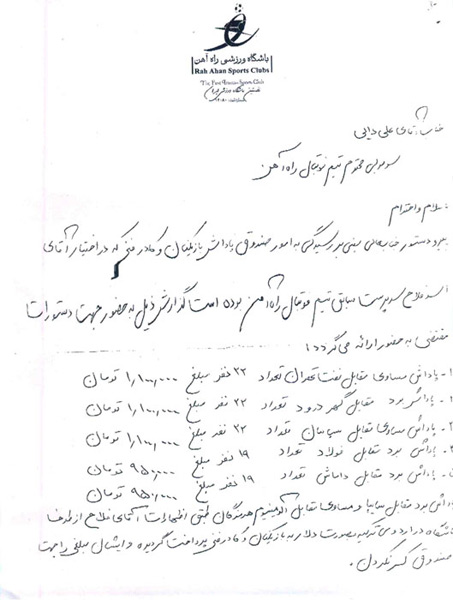 باشگاه ورزشی راه آهن
Rah Ahan Sports Clubs
The First Iranian Sports Club
جناب آقای علی دایی
سرمربی محترم تیم فوتبال راه آهن
سلام و احترام
دستور جنابعالی مبنی بر رسیدگی به امور صندوق پاداش بازیکنان و کادر فنی که در اختیار آقای
فلاح سرپرست سابق تیم فوتبال راه آهن بوده است گزارش ذیل به حضور جهت دستورات
مقتضی به حضور ارائه می گردد:
۱- پاداش مساوی مقابل نفت تهران تعداد ۲۲ نفر مبلغ ۱,۱۰۰,۰۰۰ تومان
برد مقابل گهر درود تعداد ۲۲ نفر مبلغ ۱,۱۰۰,۰۰۰ تومان
پاداش مساوی مقابل سپاهان تعداد ۲۲ نفر مبلغ ۱,۱۰۰,۰۰۰ تومان
پاداش برد مقابل فولاد تعداد ۱۹ نفر مبلغ ۹۵۰,۰۰۰ تومان
پاداش برد مقابل داماش تعداد ۱۹ نفر مبلغ ۹۵۰,۰۰۰ تومان
پاداش برد مقابل سایپا و مساوی مقابل آلومینیوم هرمزگان طبق اظهارات آقای فلاح از طرف
باشگاه در اردوی ترکیه بصورت دلار به بازیکنان و کادر فنی پرداخت گردیده و ایشان مبلغی را جهت
صندوق کسر نکردند.